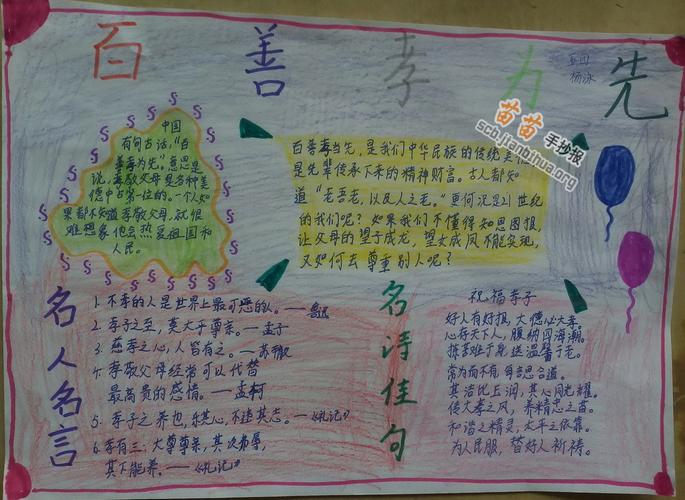 百善孝为先
五四
杨泳
苗苗手抄报
scb.jianbihua.org
中国
有句古话，“百
善孝为先。”意思是
说，孝敬父母是各种美
德中占第一位的。一个人如
果都不知道孝敬父母，就很
难想象他会热爱祖国和
人民。
百善孝当先，是我们中华民族的传统美
是先辈传承下来的精神财富。古人都知
道“老吾老，以及人之老。”更何况是21世纪
的我们呢？如果我们不懂得知恩图报，
让父母的望子成龙，望女成凤不能实现，
又如何去尊重别人呢？
名人名言
1. 不孝的人是世界上最可恶的人。——
2. 孝子之至，莫大乎尊亲。——孟子
3. 慈孝之心，人皆有之。——苏辙
4. 孝敬父母经常可以代替
最高贵的感情。——孟柯
5. 孝子之养也，乐其心，不违其志。——《礼记》
6. 孝有三：大尊尊亲，其次弗辱，
其下能养。——《礼记》
名诗佳句
祝福孝子
好人有好报，大德必大孝。
心存天下人，腹纳四海潮。
拣苦难于身，送温馨于老。
常为而不有，每言思合道。
其洁比上润，其心同光耀。
传大孝之风，养精忠之苗。
和谐之精灵，太平之依靠。
为人民服，替好人祈祷。